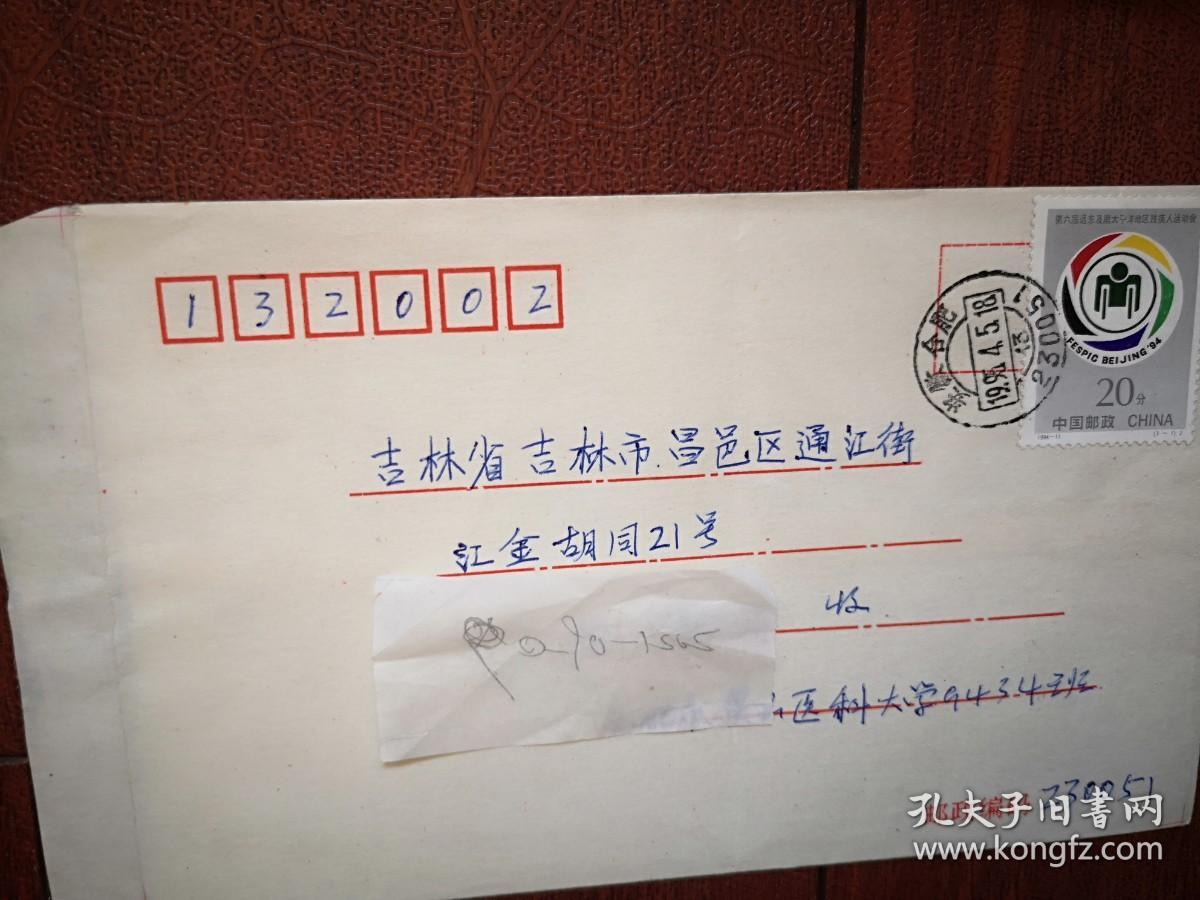 第六届远东及南太平洋地区残疾人运动会
FESPIC BEIJING '94
20分
中国邮政 CHINA
安徽合肥
230051
132002
吉林省吉林市昌邑区通江街
江金胡同21号
收
医科大学9434班
邮政编码 230051
孔夫子旧书网
www.kongfz.com